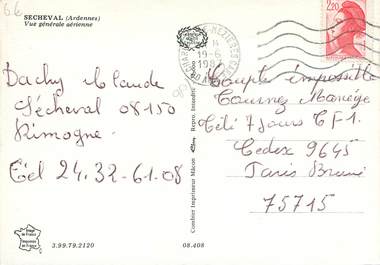 66
SECHEVAL (Ardennes)
Vue générale aérienne
2,20
19-6
Dachy Claude
Sécheval 08150
Rimogne
Tél 24.32-61.08
Couple impossible
Tournez Manège
Télé 7 Jours TF1.
Cedex 9645
Paris Brune
75715
Combier Imprimeur Mâcon
Repro. Interdite
3.99.79.2120
08.408